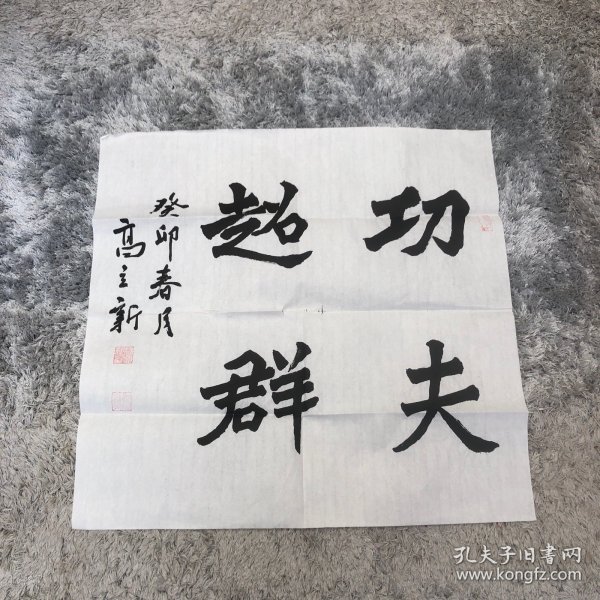 功夫
超群
癸卯春月
高立新
孔夫子旧书网
www.kongfz.com